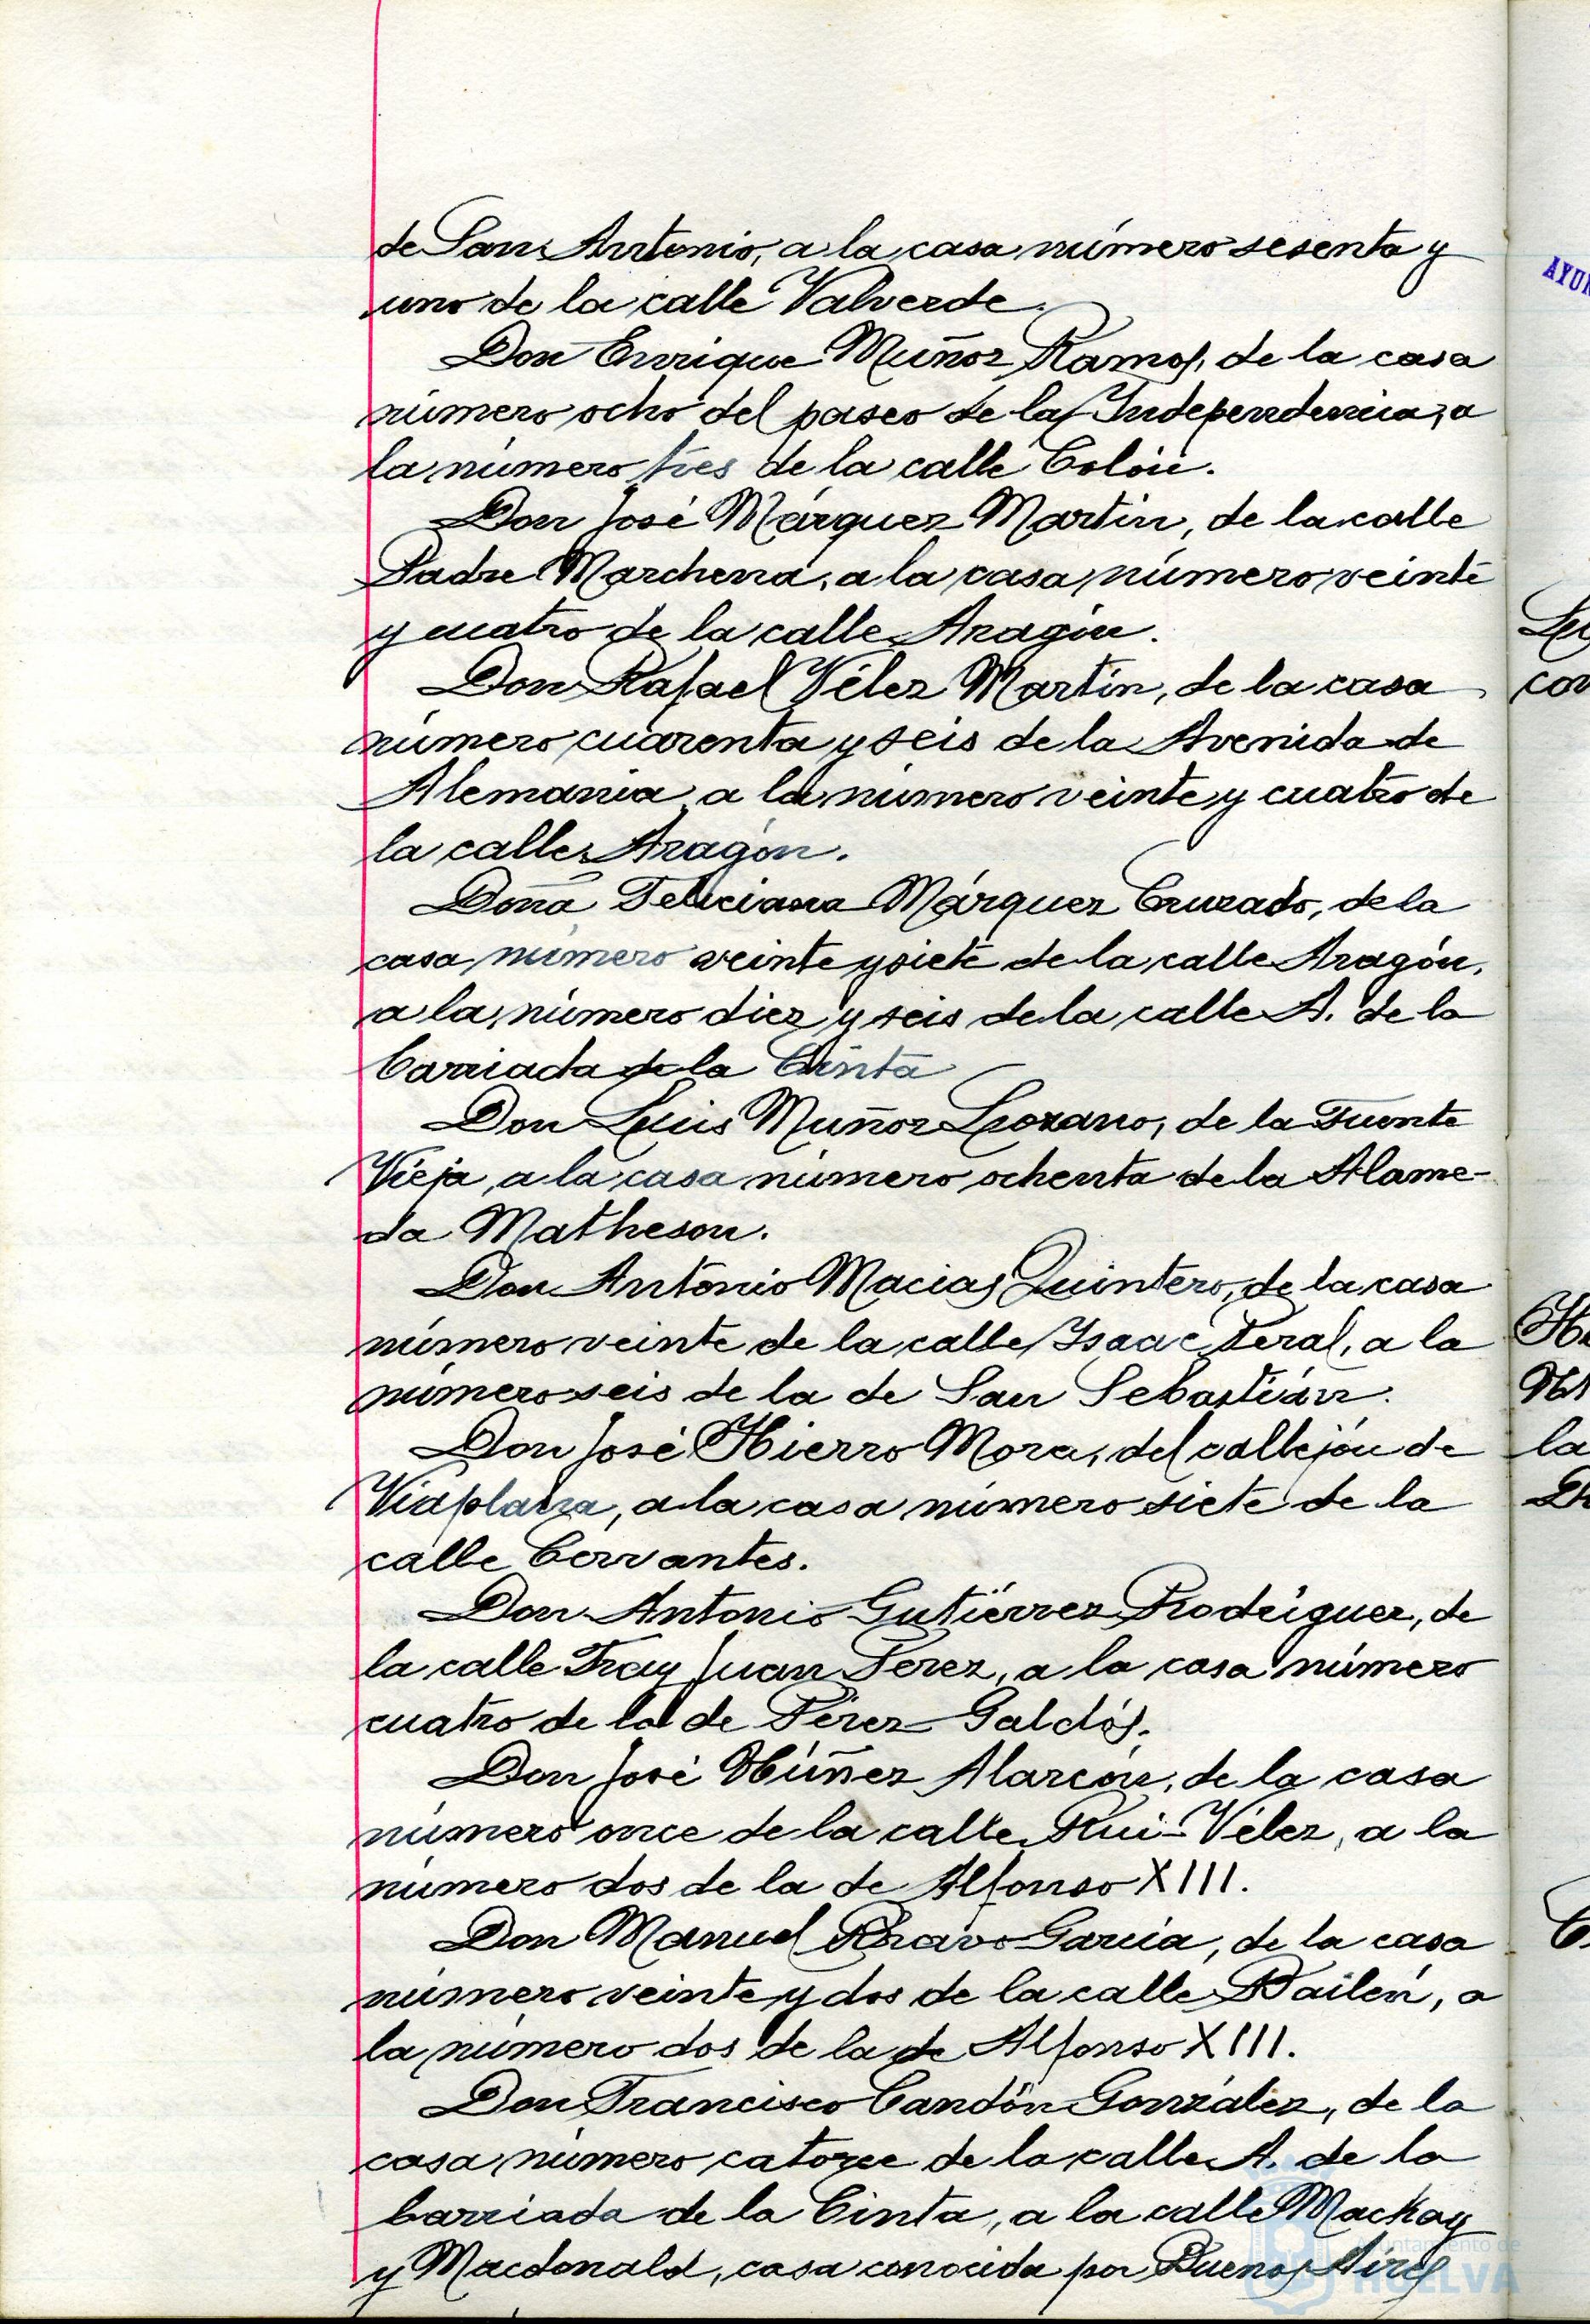 de San Antonio, a la casa número sesenta y
uno de la calle Valverde.
Don Enrique Muñoz Ramos, de la casa
número ocho del paseo de la Independencia, a
la número tres de la calle Colón.
Don José Márquez Martín, de la calle
Padre Marchena, a la casa número veinte
y cuatro de la calle Aragón.
Don Rafael Vélez Martín, de la casa
número cuarenta y seis de la Avenida de
Alemania a la número veinte y cuatro de
la calle Aragón.
Doña Feliciana Márquez Cruzado, de la
casa número veinte y siete de la calle Aragón,
a la número diez y seis de la calle A. de la
barriada de la Cinta
Don Luis Muñoz Lozano, de la Fuente
Vieja, a la casa número ochenta de la Alame-
da Matheson.
Don Antonio Macias Quintero, de la casa
número veinte de la calle Isaac Peral, a la
número seis de la de San Sebastián.
Don José Hierro Mora, del callejón de
Viaplana, a la casa número siete de la
calle Cervantes.
Don Antonio Gutiérrez Rodríguez, de
la calle Fray Juan Perez, a la casa número
cuatro de la de Pérez Galdós.
Don José Núñez Alarcón, de la casa
número once de la calle Rui-Vélez, a la
número dos de la de Alfonso XIII.
Don Manuel Bravo García, de la casa
número veinte y dos de la calle Bailén, a
la número dos de la de Alfonso XIII.
Don Francisco Candón González, de la
casa número catorce de la calle A. de la
barriada de la Cinta, a la calle Mackay
y Macdonald, casa conocida por Buenos Aires
Ayuntamiento de
HUELVA